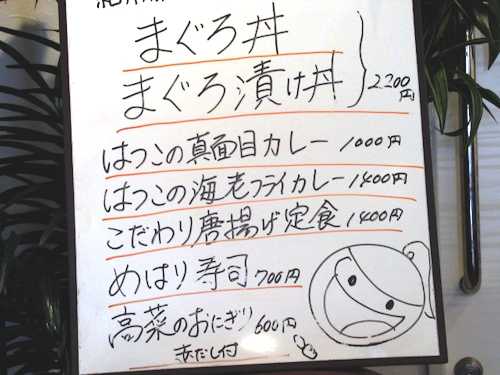 まぐろ丼
まぐろ漬け丼 2200円
はつこの真面目カレー 1000円
はつこの海老フライカレー 1400円
こだわり唐揚げ定食 1400円
めはり寿司 700円
高菜のおにぎり 600円
赤だし付